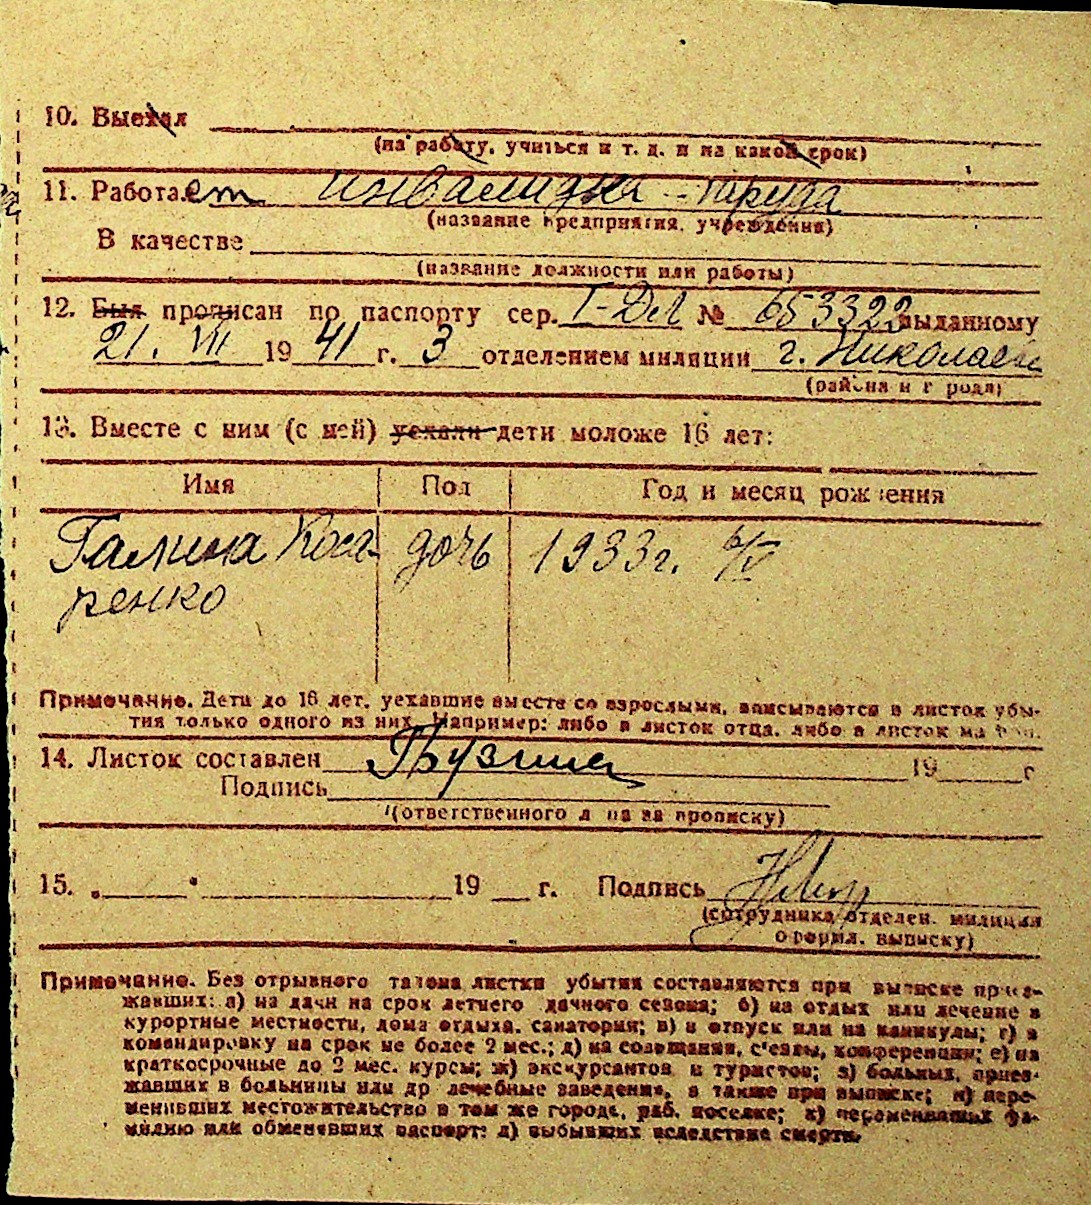 10. Выехал
(на работу, учиться и т. д. и на какой срок)
11. Работает инвалидка - труда
(название предприятия, учреждения)
В качестве
(название должности или работы)
12. Был прописан по паспорту сер. I-ДЛ № 653323 выданному
21. VII 1941 г. 3 отделением милиции г. Николаев
(района и города)
13. Вместе с ним (с ней) уехали дети моложе 16 лет:
Имя Пол Год и месяц рождения
Галина Коса- дочь 1933г. 6/V
ренко
Примечание. Дети до 16 лет, уехавшие вместе со взрослыми, вписываются в листок убы-
тия только одного из них. Например: либо в листок отца, либо в листок матери.
14. Листок составлен 19 г
Подпись
(ответственного лица за прописку)
15. „ " 19 г. Подпись
(сотрудника отделен. милиции
оформл. выписку)
Примечание. Без отрывного талона листки убытия составляются при выписке приез-
жавших: а) на дачи на срок летнего дачного сезона; б) на отдых или лечение в
курортные местности, дома отдыха, санатории; в) в отпуск или на каникулы; г) в
командировку на срок не более 2 мес.; д) на совещания, с'езды, конференции; е) на
краткосрочные до 2 мес. курсы; ж) экскурсантов и туристов; з) больных, приез-
жавших в больницы или др лечебные заведения, а также при выписке; и) пере-
менивших местожительство в том же городе, раб. поселке; к) переменивших фа-
милию или обменявших паспорт: л) выбывших вследствие смерти.